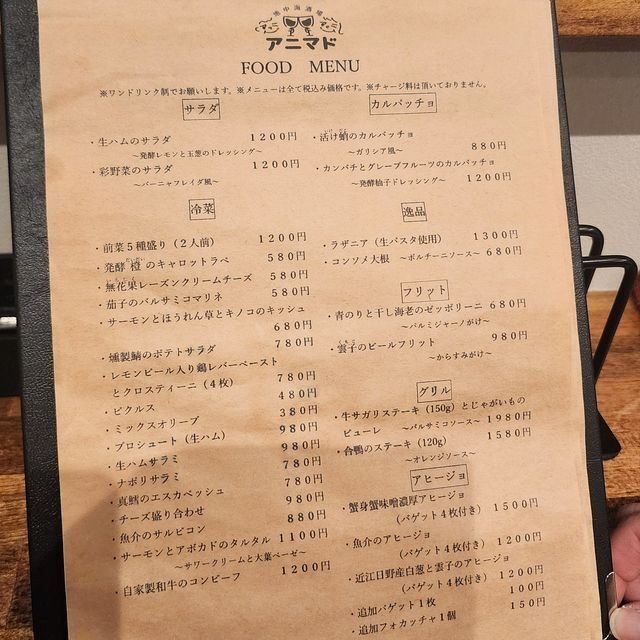 地中海酒場
アニマド
FOOD MENU
※ワンドリンク制でお願いします。※メニューは全て税込み価格です。※チャージ料は頂いておりません。
サラダ
・生ハムのサラダ 1200円
～発酵レモンと玉葱のドレッシング～
・彩野菜のサラダ 1200円
～バーニャフレイダ風～
冷菜
・前菜5種盛り(2人前) 1200円
・発酵橙のキャロットラペ 580円
・無花果レーズンクリームチーズ 580円
・茄子のバルサミコマリネ 580円
・サーモンとほうれん草とキノコのキッシュ
680円
・燻製鯖のポテトサラダ 780円
・レモンビール入り鶏レバーペースト
とクロスティーニ(4枚) 780円
・ピクルス 480円
・ミックスオリーブ 380円
・プロシュート(生ハム) 980円
・生ハムサラミ 980円
・ナポリサラミ 780円
・真鱈のエスカベッシュ 780円
・チーズ盛り合わせ 980円
・魚介のサルピコン 880円
・サーモンとアボカドのタルタル 1100円
～サワークリームと大葉ペーゼ～
・自家製和牛のコンビーフ 1200円
カルパッチョ
・活け蛸のカルパッチョ
～ガリシア風～ 880円
・カンパチとグレープフルーツのカルパッチョ
～発酵柚子ドレッシング～ 1200円
逸品
・ラザニア(生パスタ使用) 1300円
・コンソメ大根 ～ポルチーニソース～ 680円
フリット
・青のりと干し海老のゼッポリーニ 680円
～パルミジャーノがけ～
・雲子のビールフリット 980円
～からすみがけ～
グリル
・牛サガリステーキ(150g)とじゃがいもの
ピューレ ～バルサミコソース～ 1980円
・合鴨のステーキ(120g) 1580円
～オレンジソース～
アヒージョ
・蟹身蟹味噌濃厚アヒージョ
(バゲット4枚付き) 1500円
・魚介のアヒージョ
(バゲット4枚付き) 1200円
・近江日野産白葱と雲子のアヒージョ
(バゲット4枚付き) 1200円
・追加バゲット1枚 100円
・追加フォカッチャ1個 150円